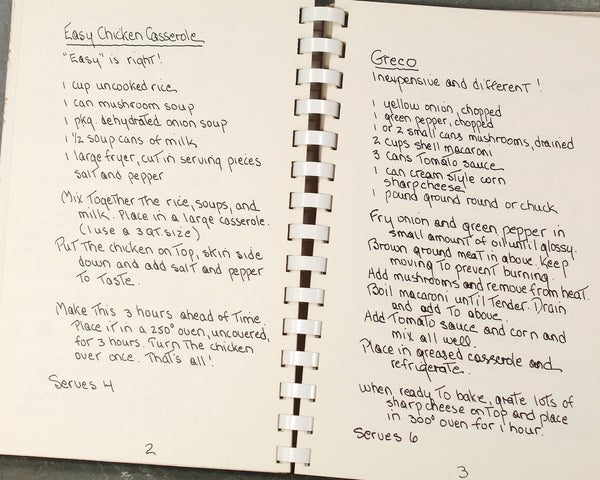 Easy Chicken Casserole
"Easy" is right!
1 cup uncooked rice
1 can mushroom soup
1 pkg. dehydrated onion soup
1 1/2 soup cans of milk
1 large fryer, cut in serving pieces
salt and pepper
Mix together the rice, soups, and
milk. Place in a large casserole.
(I use a 3 qt. size)
Put the chicken on top, skin side
down and add salt and pepper
to taste.
Make this 3 hours ahead of time.
Place it in a 250° oven, uncovered,
for 3 hours. Turn the chicken
over once. That's all!
Serves 4
2
Greco
Inexpensive and different!
1 yellow onion, chopped
1 green pepper, chopped
1 or 2 small cans mushrooms, drained
2 cups shell macaroni
3 cans tomato sauce
1 can cream style corn
sharp cheese
1 pound ground round or chuck
Fry onion and green pepper in
small amount of oil until glossy.
Brown ground meat in above. Keep
moving to prevent burning.
Add mushrooms and remove from heat.
Boil macaroni until tender. Drain
and add to above.
Add tomato sauce and corn and
mix all well.
Place in greased casserole and
refrigerate.
When ready to bake, grate lots of
sharp cheese on top and place
in 300° oven for 1 hour.
Serves 6
3